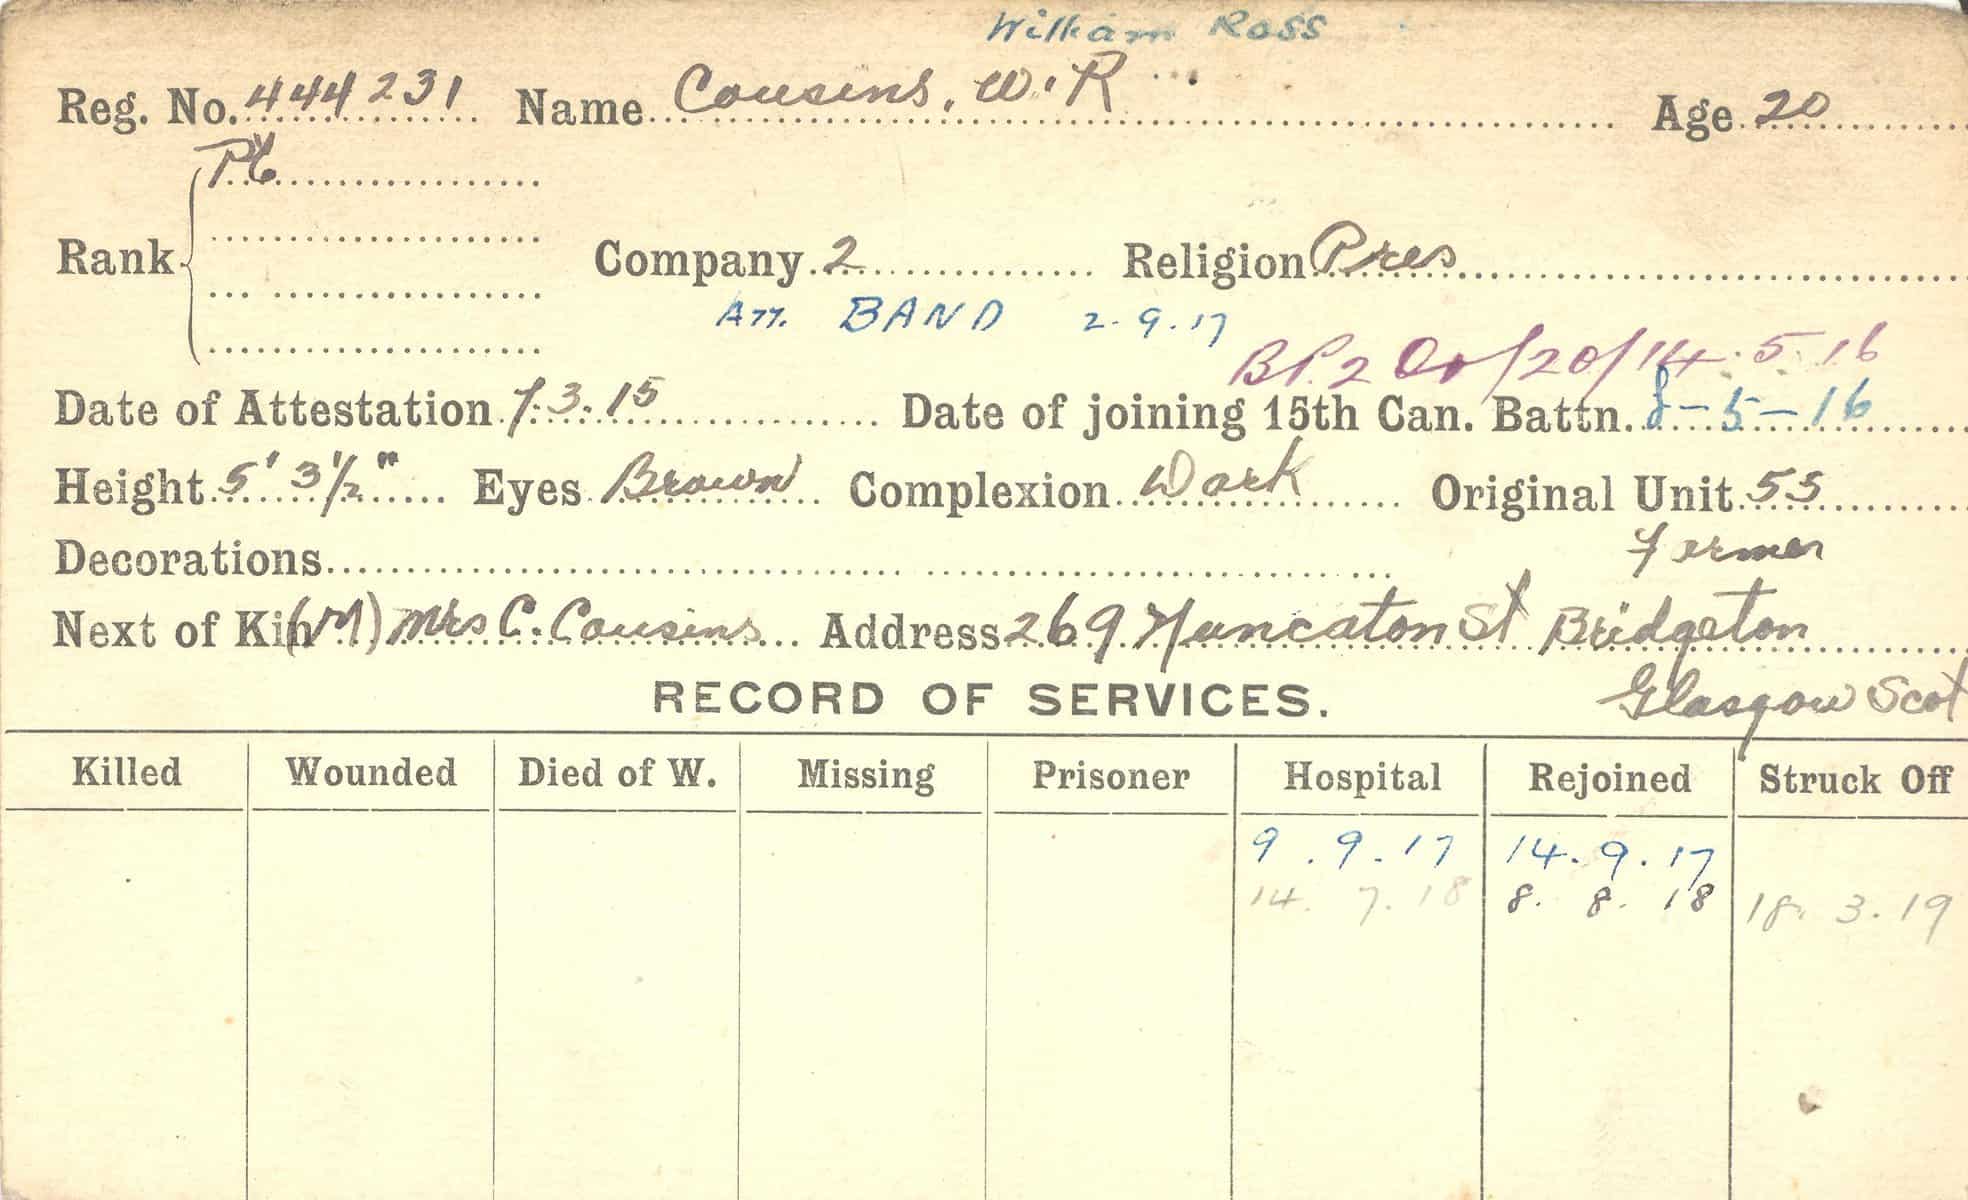 William Ross
Reg. No. 444231 Name Cousins, W.R Age 20
Pte
Rank Company 2 Religion Pres
Att. BAND 2.9.17
14.5.16
Date of Attestation 7.3.15 Date of joining 15th Can. Battn. 8-5-16
Height 5' 3 1/2" Eyes Brown Complexion Dark Original Unit 55
Decorations Farmer
Next of Kin (M) Mrs C. Cousins Address 269 Nuneaton St Bridgeton
RECORD OF SERVICES. Glasgow Scot
Killed Wounded Died of W. Missing Prisoner Hospital Rejoined Struck Off
9.9.17 14.9.17
14.7.18 8.8.18 18.3.19